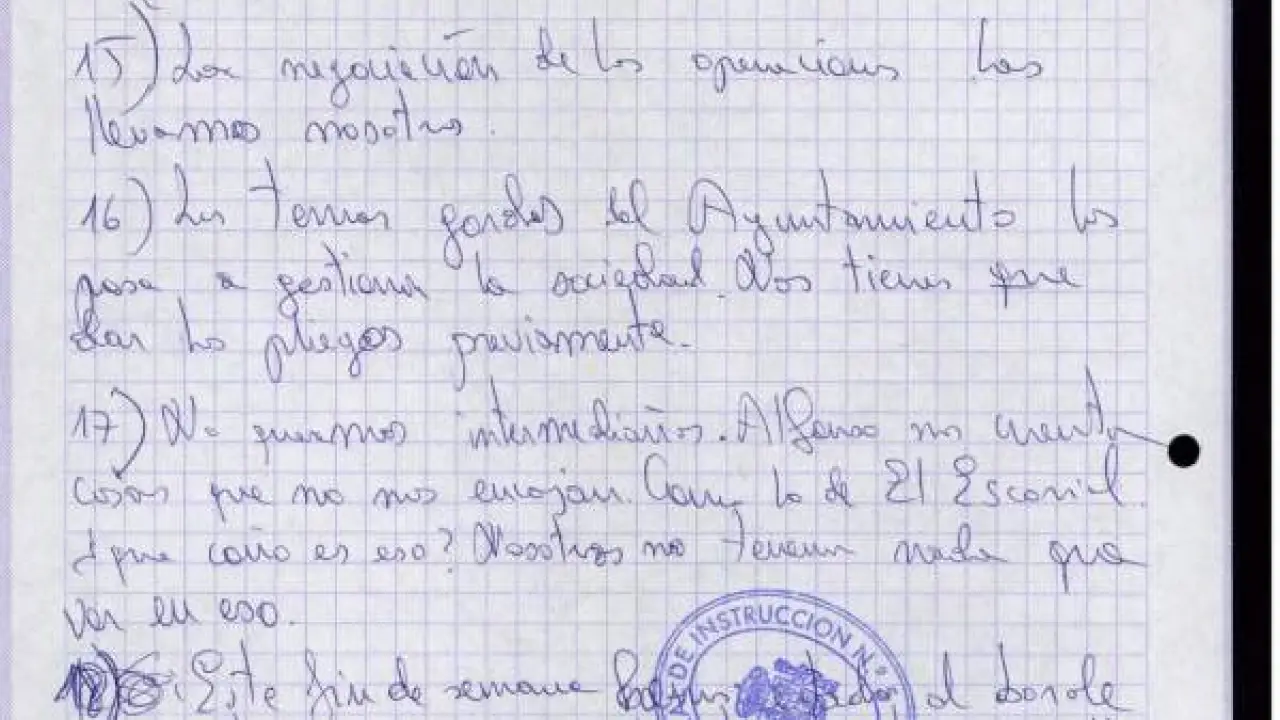 15) Las negociación de las operaciones las
llevamos nosotros.
16) Los temas gordos del Ayuntamiento los
pasa a gestionar la sociedad. Nos tienes que
dar los pliegos previamente.
17) No queremos intermediarios. Alfonso nos cuenta
cosas que no nos encajan. Como lo de El Escorial.
¿que coño es eso? Nosotros no tenemos nada que
ver en eso.
DE INSTRUCCION N.º
Este fin de semana el